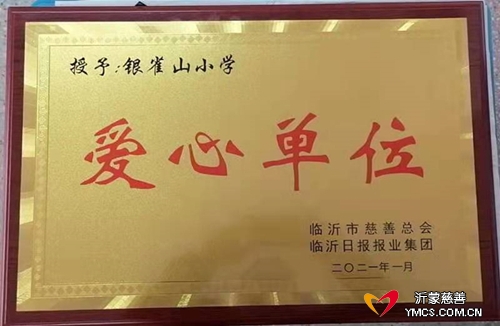 授予:银雀山小学
爱心单位
临沂市慈善总会
临沂日报报业集团
二〇二一年一月
沂蒙慈善
YMCS.COM.CN